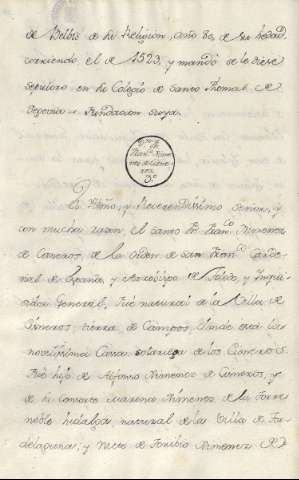 de Belén de su Religion, año 80, de su hedad
corriendo el de 1523, y mandó se le diese
sepulcro en su Colegio de Santo Thomas de
Fundacion suya.
Fr. D.
Fran.co Xime
nez de Cisne
ros
3.º
y Reverendissimo Señor, y
con mucha razon el Santo Fr. Fran.co Ximenez
de Cisneros, de la orden de San Fran.co Carde
nal de España, y Arzobispo de Toledo, y Inqui
sidor General, Fué natural de la Villa de
Cisneros, tierra de Campos, donde está la
novelissima Cassa solariega de los Cisneros.
Fué hijo de Alfonso Ximenez de Cisneros, y
de su consorte Marina Ximenez de la Torre
noble hidalga, natural de la Villa de Tor
delaguna; y Nieto de Toribio Ximenez